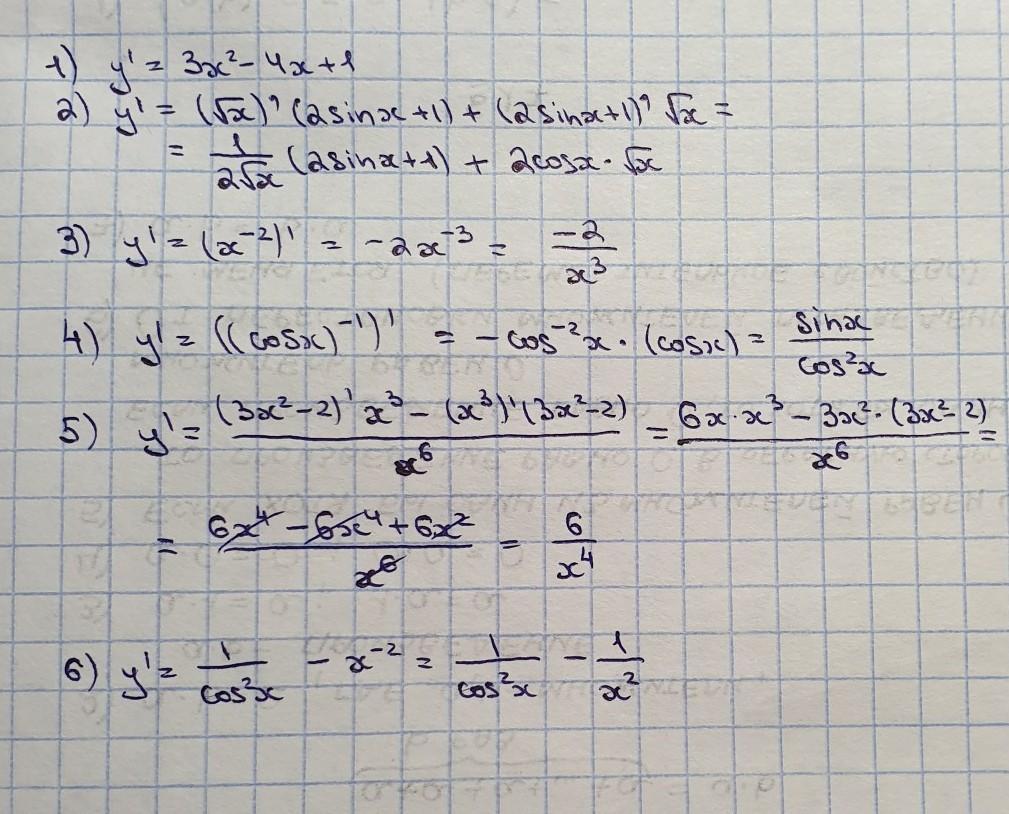 1) y' = 3x² - 4x + 1
2) y' = (√x)' (2sinx + 1) + (2sinx+1)' √x =
= 1/(2√x) (2sinx + 1) + 2cosx · √x
3) y' = (x⁻²)' = -2x⁻³ = -2/x³
4) y' = ((cosx)⁻¹)' = -cos⁻²x · (cosx) = sinx/cos²x
5) y' = ((3x²-2)' x³ - (x³)' (3x²-2))/x⁶ = (6x·x³ - 3x²·(3x²-2))/x⁶ =
= (6x⁴ - 6x⁴ + 6x²)/x⁶ = 6/x⁴
6) y' = 1/cos²x - x⁻² = 1/cos²x - 1/x²